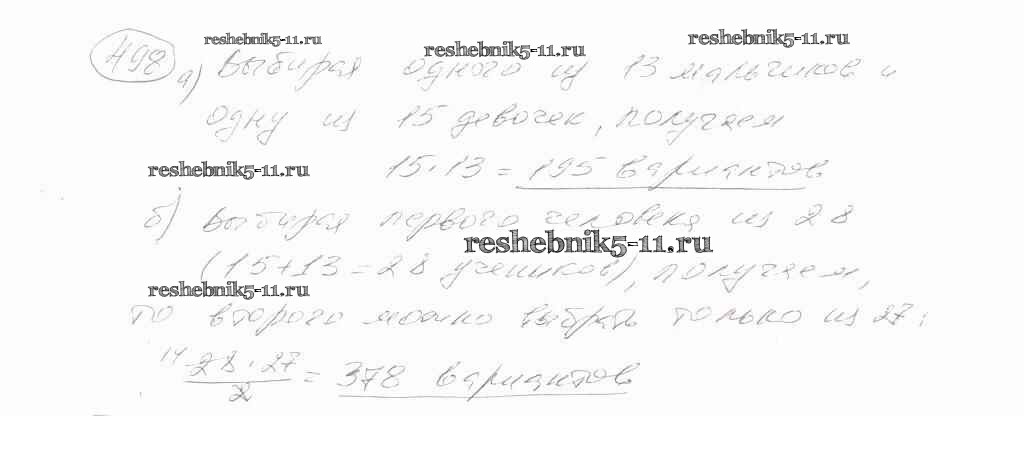 498
reshebnik5-11.ru
reshebnik5-11.ru
reshebnik5-11.ru
а) Выбирая одного из 13 мальчиков и
одну из 15 девочек, получаем
reshebnik5-11.ru
15·13 = 195 вариантов
б) Выбирая первого человека из 28
reshebnik5-11.ru
(15+13=28 учеников), получаем,
reshebnik5-11.ru
то второго можно выбрать только из 27:
14 28·27 / 2 = 378 вариантов